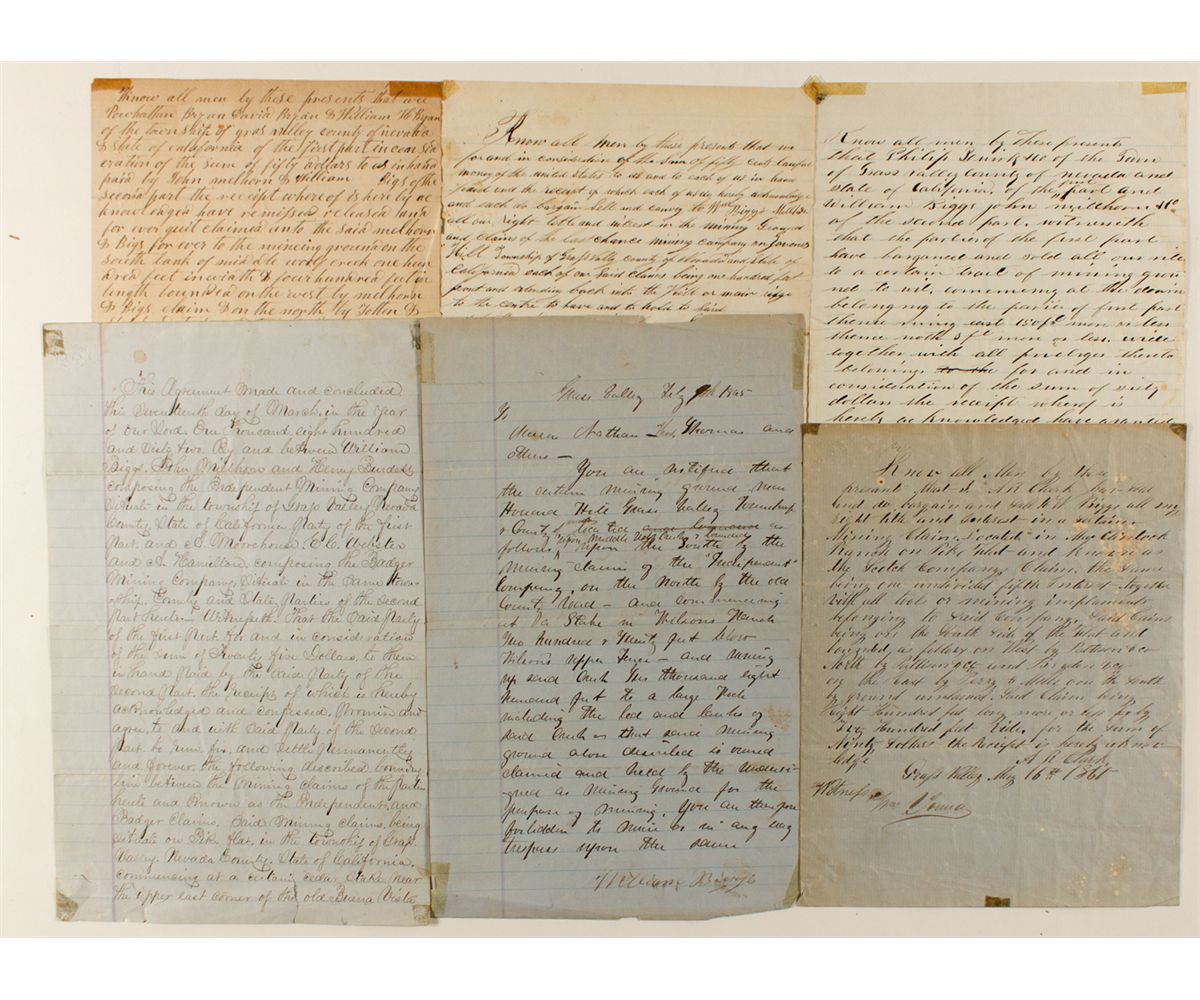 Know all men by these presents that wee
Powhattan Bryan David Bryan & William H Bryan
of the township of gras valley county of nevada
& state of california of the first part in consid
eration of the sum of fifty dollars to us in hand
paid by John melhorn & William Bigs of the
second part the receipt where of is here by ac
knowledged have remissed released and
for ever quit claimed unto the said melhorn
& Bigs for ever to the mineing ground on the
south bank of middle wolf creek one hun
dred feet in width & four hundred feet in
length bounded on the west by melhorn
& Bigs claim & on the north by Totten &
Know all men by these presents that we
for and in consideration of the sum of fifty cents lawful
money of the united States to us and to each of us in hand
paid and the receipt of which each of us do hereby acknowledge
and each do bargain sell and convey to Wm Biggs
all our right title and interest in the mining Ground
and claims of the last chance mining company on
Hill Township of Grass Valley county of Nevada and State of
California each of our Said Claims being one hundred feet
front and extending back into the Hill or main ridge
to the centre to have and to hold to Said
Know all men by these presents
that Philip of the Town
of Grass Valley County of nevada and
state of California, of the first part and
William Biggs john milhorn &c
of the second part, witnesseth
that the parties of the first part
have barganed and sold all our rite
to a certain tract of mining grou
nd to wit, commencing at the
belonging to the partis of first part
thence runing east 150 ft mor or les
thence noth 5 ft mor or les. wide
together with all privliges thereto
beloning. to the for and in
consideration of the sum of sixty
dollars the receipt wherof is
hereby acknowledged have granted
This Agreement Made and concluded
this Seventeenth day of March, in the Year
of our Lord One Thousand eight hundred
and Sixty two. By and between William
Biggs, John Milhorn and Henry
composing the Independent Mining Company
Situate in the township of Grass Valley, Nevada
County, State of California, Party of the first
Part. and A. Moorehouse, E.C. Webster
and A. Hamilton, composing the Badger
Mining Company, Situate in the Same town-
ship, County and State, Parties of the Second
Part hereto. Witnesseth. That the Said Party
of the first Part for and in consideration
of the sum of Twenty five Dollars, to them
in hand Paid by the Said Party of the
Second Part, the receipt of which is hereby
acknowledged and confessed, Promise and
agree, to and with Said Party of the Second
Part. to run, fix, and Settle Permanently
and forever the following discribed boundry
line between the Mining Claims of the Parties
hereto and Known as the Independent and
Badger Claims. Said Mining claims, being
Situate on Pike flat, in the township of Grass
Valley, Nevada County, State of California,
commencing at a certain cedar Stake near
the upper east corner of the old Buena Vista
Grass Valley Feby 9th 1865
To
Messrs Nathan Thomas and
others —
You are notified that
the certain mining ground near
Howard Hill Grass Valley Township
& County situated as
follows upon middle Wolf Creek & bounded upon the South by the
mining claims of the "Independent"
Company, on the North by the old
County Road — and commencing
at a Stake in Wilsons Ranch
Two hundred & Twenty feet below
Wilsons upper Fence — and running
up said Creek One thousand eight
hundred feet to a large Rock
including the bed and banks of
said Creek & that said mining
ground above discribed is owned
claimed and held by the undersi-
gned as mining ground for the
purpose of mining. You are therefore
forbidden to mine or in any way
trespass upon the same
William Biggs
Know all Men by these
present that I. A R Clark have sold
and do bargain and sell to W Biggs all my
right title and interest in a certain
Mining Claim Located in McClintock
Ranch on Pike Flat and Known as
the Scotch Company Claim, the same
being one undivided fifth interest together
with all tools or mining implements
belonging to Said Company, Said Claims
being on the South Side of the flat and
bounded as follows on West by
North by Patterson & co and
on the East by on the South
by ground unclaimed. Said Claim being
Eight Hundred feet long more or less by
Hundred feet Wide, for the Sum of
Ninty Dollars the Receipt is hereby acknow
ledge A R Clark
Grass Valley May 16th
Witness